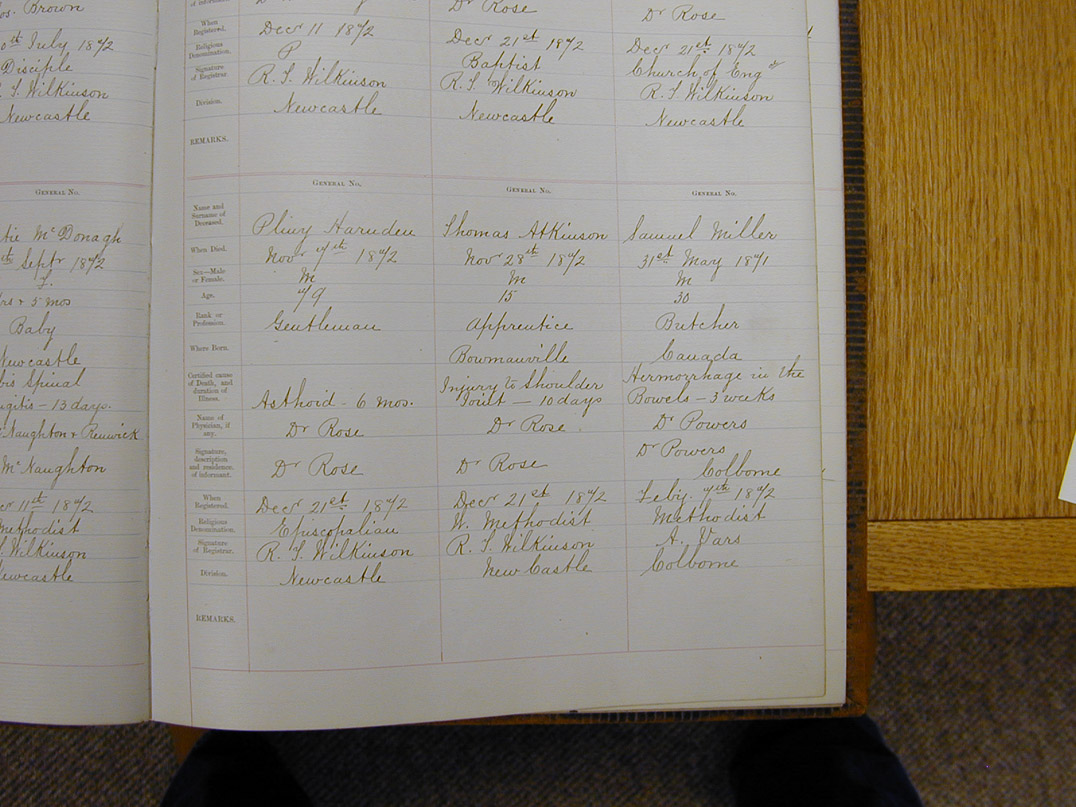 os. Brown
July 1872
Disciple
S. Wilkinson
Newcastle
GENERAL No.
tie McDonagh
th Septr 1872
f.
yrs & 5 mos
Baby
Newcastle
bis Spinal
gitis - 13 days.
McNaughton & Renwick
McNaughton
cr 11th 1872
Methodist
S. Wilkinson
Newcastle
of informant.
Dr Rose
Dr Rose
When Registered.
Decr 11 1872
Decr 21st 1872
Decr 21st 1872
Religious Denomination.
P
Baptist
Church of Engd
Signature of Registrar.
R. S. Wilkinson
R. S. Wilkinson
R. S Wilkinson
Division.
Newcastle
Newcastle
Newcastle
REMARKS.
GENERAL No.
GENERAL No.
GENERAL No.
Name and Surname of Deceased.
Pliny Harnden
Thomas Atkinson
Samuel Miller
When Died.
Novr 7th 1872
Novr 28th 1872
31st May 1871
Sex—Male or Female.
M
M
M
Age.
79
15
30
Rank or Profession.
Gentleman
Apprentice
Butcher
Where Born.
Bowmanville
Canada
Certified cause of Death, and duration of Illness.
Asthoid - 6 mos.
Injury to Shoulder
Joint — 10 days
Hermorrhage in the
Bowels - 3 weeks
Name of Physician, if any.
Dr Rose
Dr Rose
Dr Powers
Signature, description and residence of informant.
Dr Rose
Dr Rose
Dr Powers
Colborne
When Registered.
Decr 21st 1872
Decr 21st 1872
Feby. 7th 1872
Religious Denomination.
Episcopalian
W. Methodist
Methodist
Signature of Registrar.
R. S. Wilkinson
R. S. Wilkinson
A. Vars
Division.
Newcastle
New Castle
Colborne
REMARKS.